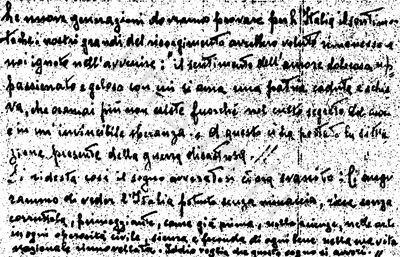 he nuove generazioni dovranno provare per l'Italia il sentimen
to che i nostri grandi del risorgimento avrebbero voluto rimanesse a
noi ignoto nell'avvenire: "il sentimento dell'amore doloroso, ap
passionato e geloso con cui si ama una patria caduta e schia
va, che oramai più non esiste fuorché nel culto segreto del cuore
e in un'invincibile speranza". A questo ci ha portato la situa
zione presente della guerra disastrosa.
Si ridesta così il sogno avveratosi ed ora svanito: Ci augu
riamo di veder l'Italia potente senza minaccia, ricca senza
corruttela, primeggiante, come già prima, nelle scienze, nelle arti
in ogni operosità civile, sicura e feconda di ogni bene nella sua vita
nazionale rinnovellata. Iddio voglia che questo sogno si avveri.